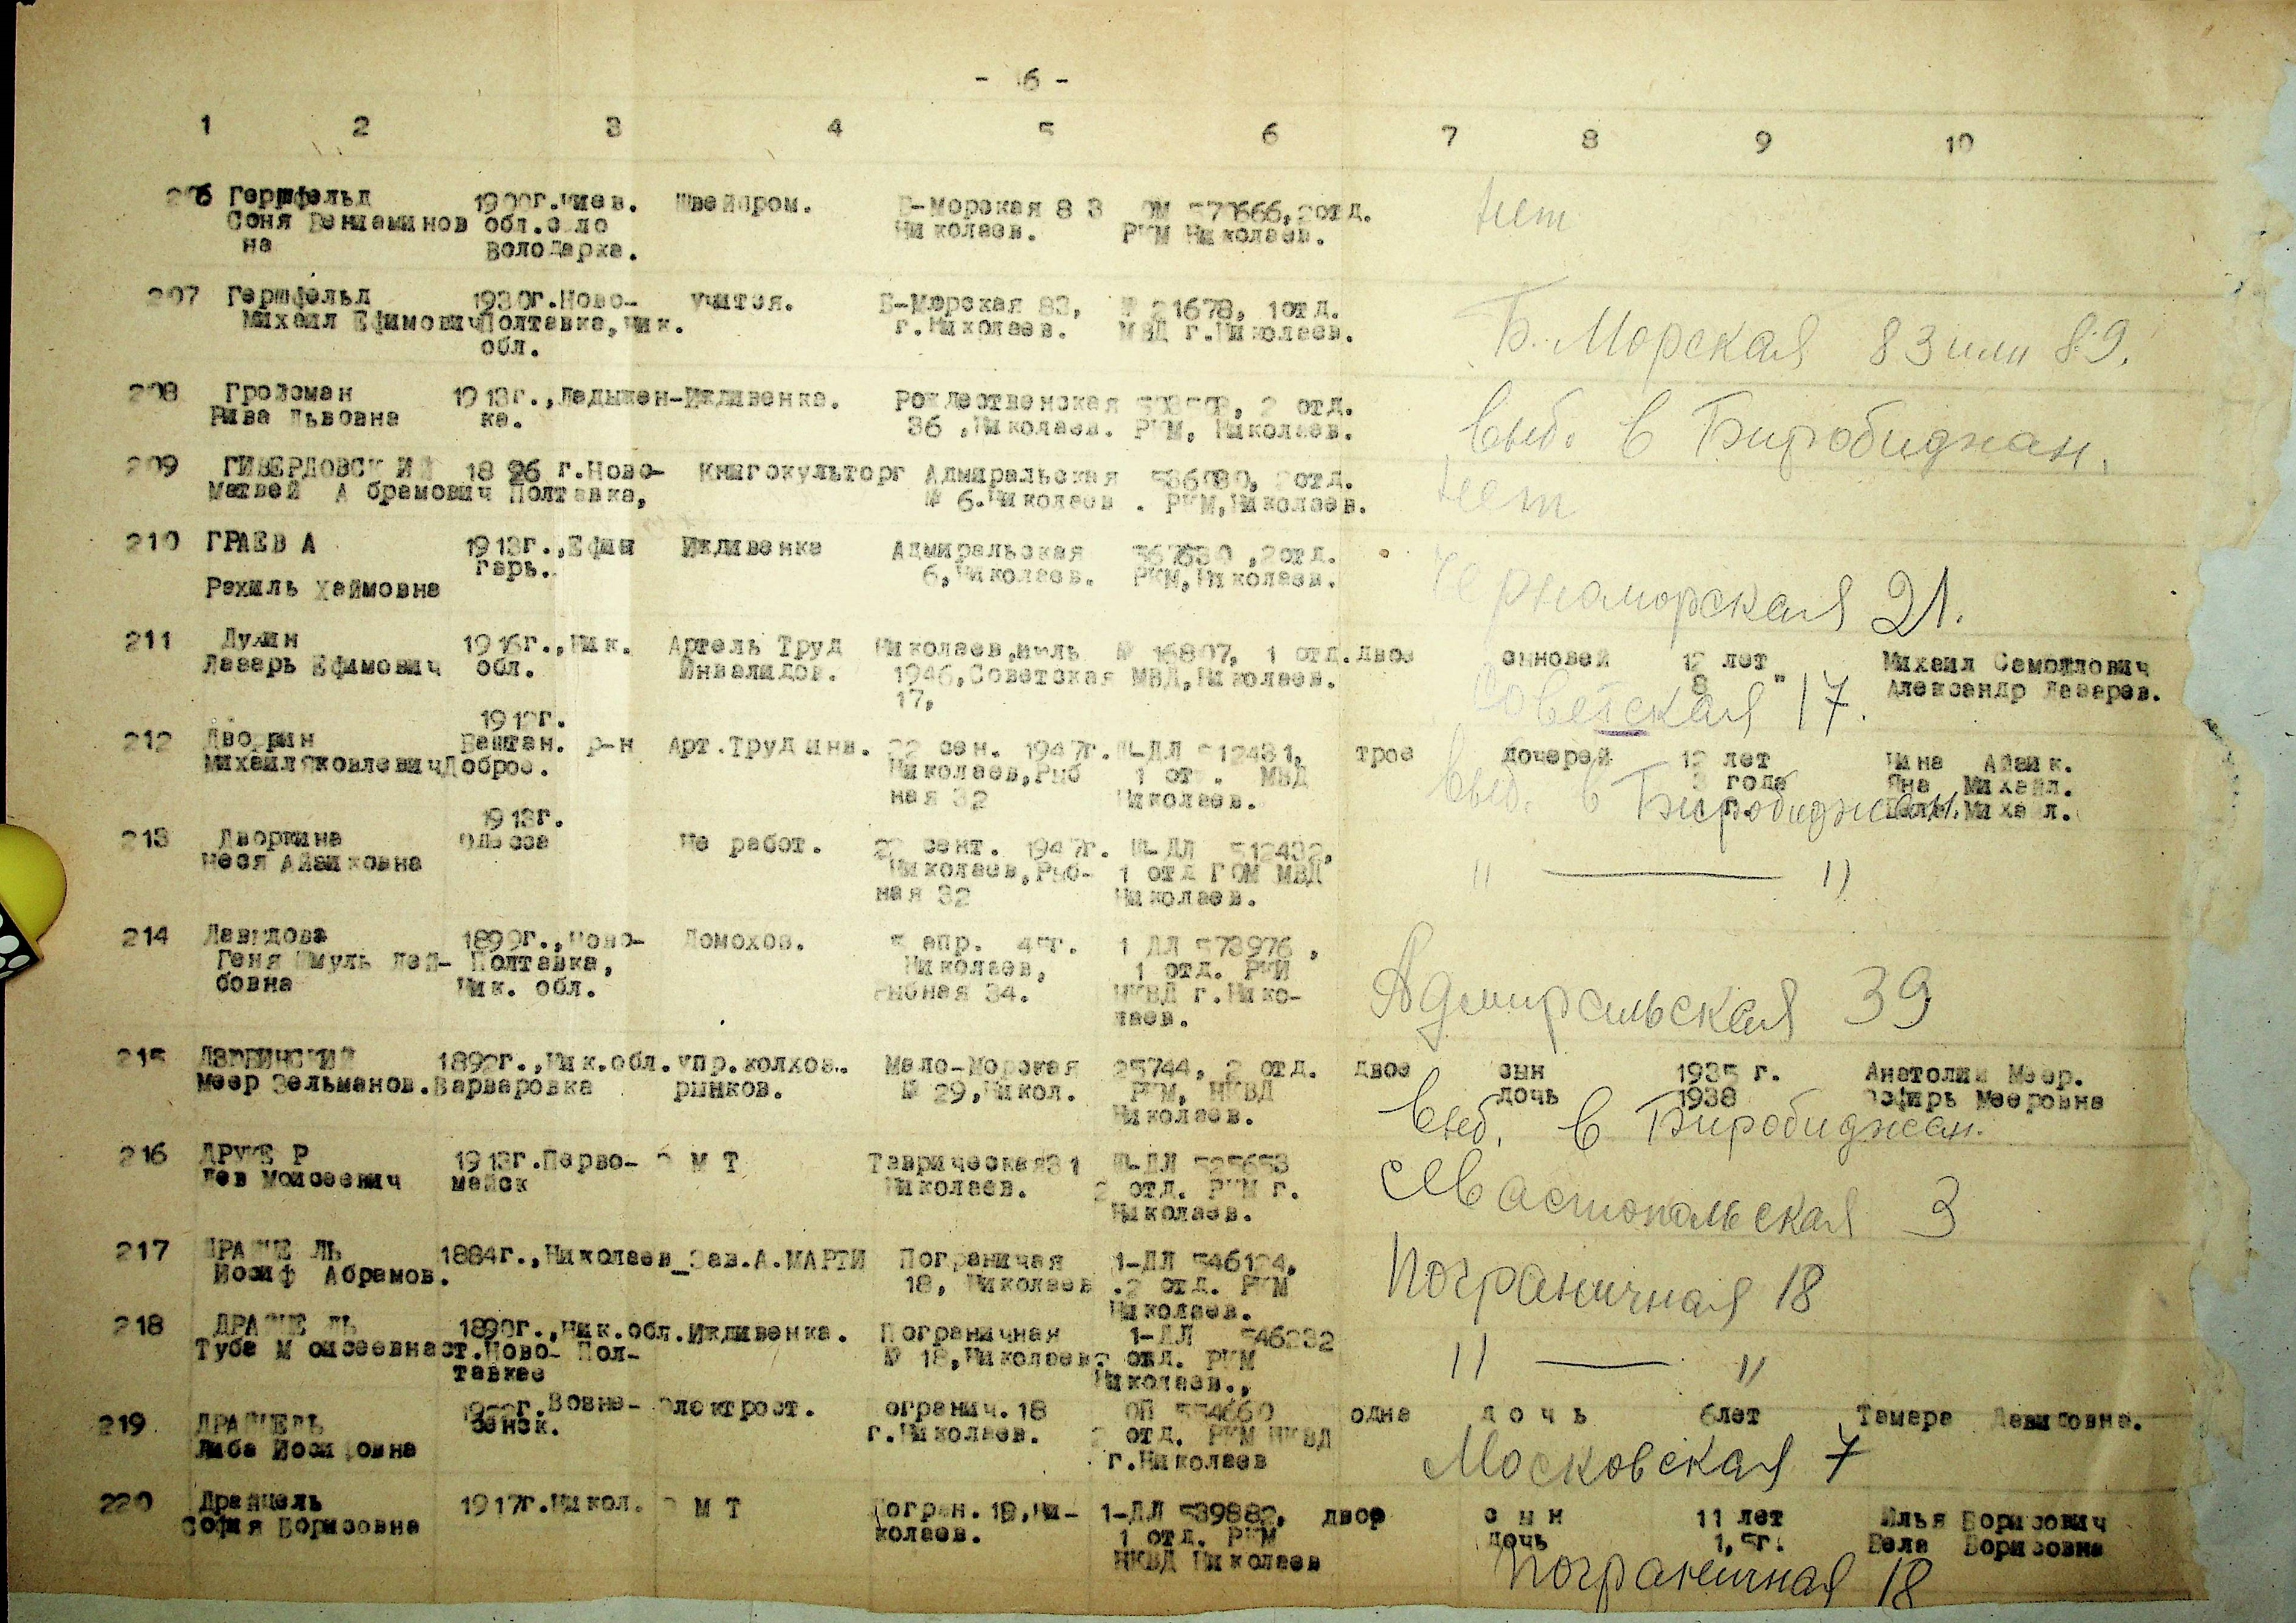 - 6 -
1 2 3 4 5 6 7 8 9 10
206 Гершфельд 1900г.Киев. Швейпром. Б-Морская 83 570666,2отд. нет
Соня Вениаминов обл.село Николаев. РКМ Николаев.
на Володарка.
207 Гершфельд 1930г.Ново- учится. Б-Морская 83, № 21678, 1отд.
Михаил ЕфимовичПолтавка,Ник. г.Николаев. МВД г.Николаев.
обл.
Б. Морская 83 или 89.
208 Гройсман 1913г.,Ладыжен-Иждивенка. Рождественская 2 отд.
Рива Львовна ка. 36 ,Николаев. РКМ, Николаев.
выб. в Биробиджан.
209 ГИВЕРДОВСКИЙ 1896 г.Ново- Книгокульторг Адмиральская 2отд.
Матвей Абрамович Полтавка, № 6.Николаев . РКМ,Николаев.
нет
210 ГРАЕВ А 1913г.,Ефин Иждивенка Адмиральская 567630 ,2отд.
гарь. 6,Николаев. РКМ,Николаев.
Рахиль Хаймовна
Черноморская 21.
211 Лазарь Ефимович 1916г.,Ник. Артель Труд Николаев,июль № 16807, 1 отд.двое сыновей 12 лет Михаил Самойлович
обл. Инвалидов. 1946,Советская МВД,Николаев. 8 " Александр Лазарев.
17,
Советская 17.
1912г.
212 Дворкин Баштан. р-н Арт.Труд инв. 22 сен. 1947г. Ш-ДЛ 512431, трое дочерей 12 лет Нина Айзик.
МихаилЯковлевичДоброе. Николаев,Рыб 1 отд. МВД 3 года Яна Михайл.
ная 32 Николаев. Михайл.
выб. в Биробиджан.
1913г.
213 Дворкина Одесса Не работ. 22 сент. 1947г. Ш-ДЛ 512432,
Неся Айзиковна Николаев,Рыб- 1 отд ГОМ МВД
ная 32 Николаев.
" — "
214 Давыдова 1899г.,Ново- Домохоз. 5 апр. 45г. 1 ДЛ 573976 ,
Геня Шмуль Лей- Полтавка, Николаев, 1 отд. РКМ
бовна Ник. обл. Рыбная 34. НКВД г.Нико-
лаев.
Адмиральская 39
215 ДЗЕРВИНСКИЙ 1892г.,Ник.обл.упр.колхоз. Мало-Морская 25744, 2 отд. двое сын 1935 г. Анатолий Меер.
Меер Зельманов.Варваровка рынков. № 29,Никол. РКМ, НКВД дочь 1938 Эсфирь Мееровна
Николаев.
выб. в Биробиджан.
216 ДРУКЕ Р 1913г.Перво- Э М Т Таврическая31 Ш-ДЛ 525653
Лев Моисеевич майск Николаев. 2 отд. РКМ г.
Николаев.
Севастопольская 3
217 ДРАЙЦЕ ЛЬ 1884г.,Николаев_Зав.А.МАРТИ Пограничая 1-ДЛ 546124,
Иосиф Абрамов. 18, Николаев .2 отд. РКМ
Николаев.
Пограничная 18
218 ДРАЙЦЕ ЛЬ 1890г.,Ник.обл.Иждивенка. Пограничная 1-ДЛ 546232
Туба Моисеевнаст.Ново- Пол- № 18,Николаев2 отд. РКМ
тавкае Николаев.,
" — "
г.Возне- Электрост. Погранич.18 554660 одна д о ч ь 6лет Тамара Давидовна.
219 ДРАЙЦЕЛЬ сенск. г.Николаев. 2 отд. РКМ НКВД
Либа Иосифовна г.Николаев
Московская 7
220 Драйцель 1917г.Никол. Э М Т Погран.18,Ни- 1-ДЛ 539882, двое с ы н 11 лет Илья Борисович
София Борисовна колаев. 1 отд. РКМ дочь 1,5г. Бела Борисовна
НКВД Николаев
Пограничная 18